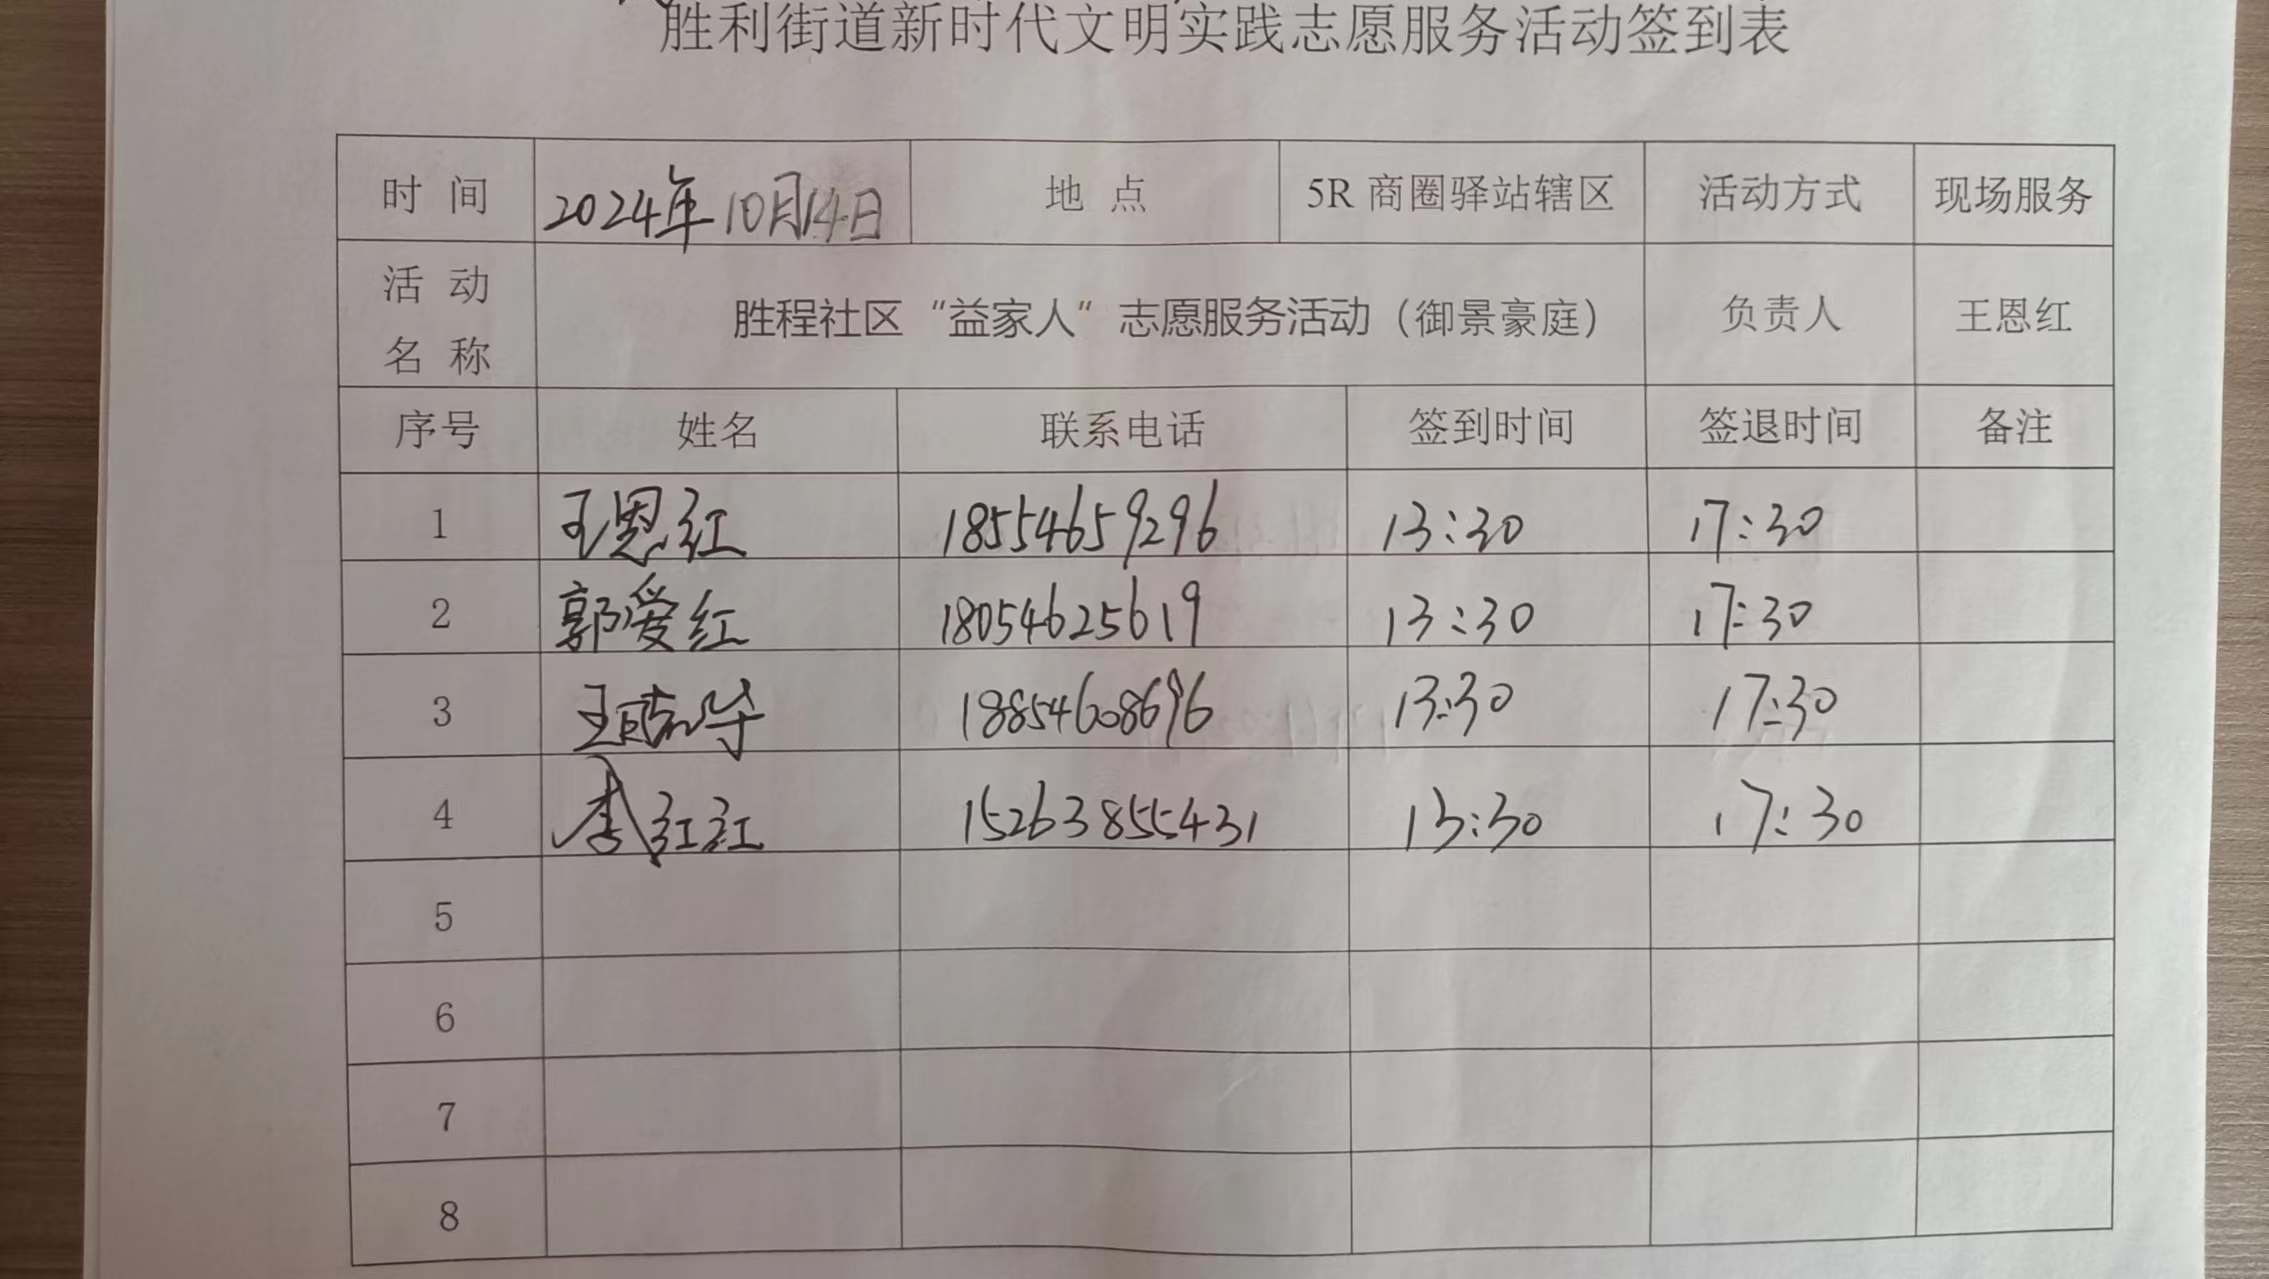 胜利街道新时代文明实践志愿服务活动签到表
时 间 2024年10月14日 地 点 5R 商圈驿站辖区 活动方式 现场服务
活 动 名 称 胜程社区“益家人”志愿服务活动（御景豪庭） 负责人 王恩红
序号 姓名 联系电话 签到时间 签退时间 备注
1 王恩红 18554659296 13:30 17:30
2 郭爱红 18054625619 13:30 17:30
3 王 18854608696 13:30 17:30
4 李红红 15263855431 13:30 17:30
5
6
7
8